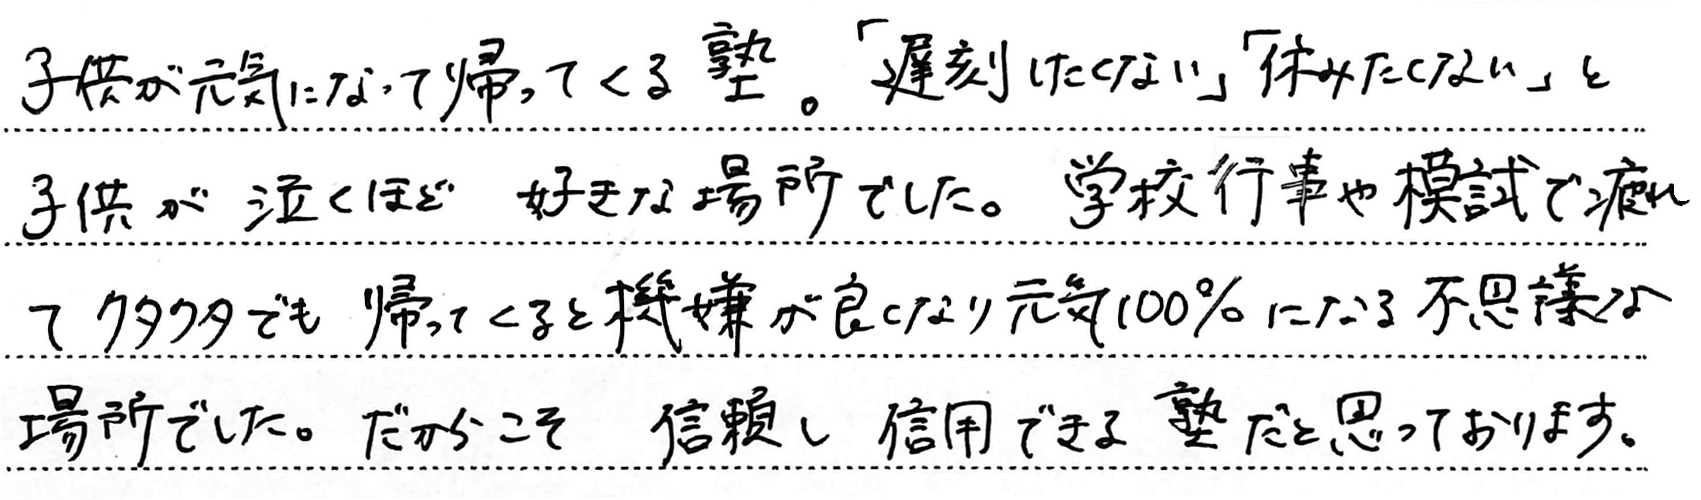 子供が元気になって帰ってくる塾。「遅刻したくない」「休みたくない」と
子供が泣くほど 好きな場所でした。 学校行事や模試で疲れ
てクタクタでも 帰ってくると機嫌が良くなり元気100%になる不思議な
場所でした。だからこそ 信頼し 信用できる塾だと思っております。